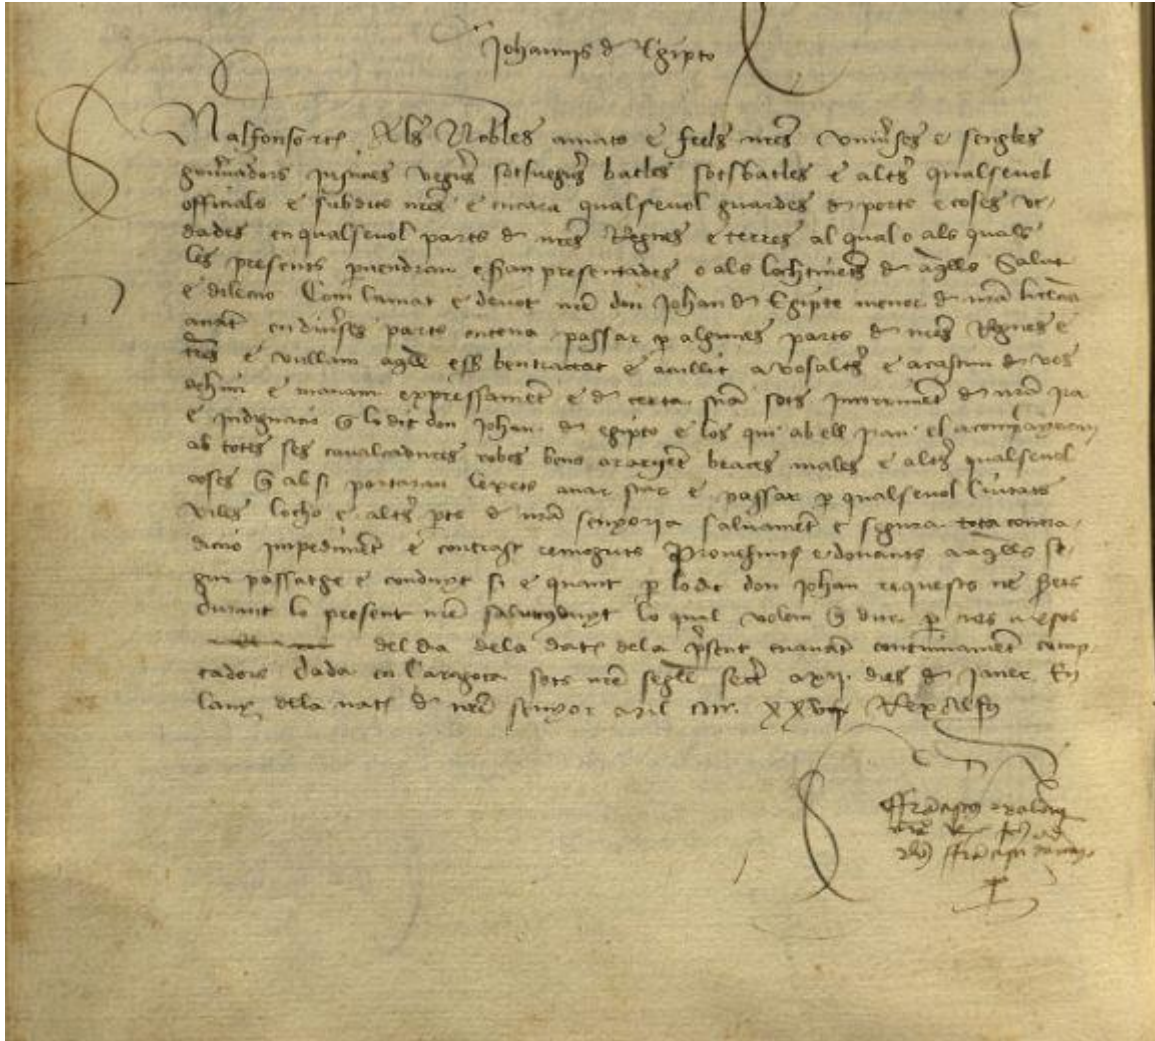 Johannis de Egipto
N alfonso etc. Als Nobles amats e feels nres univses e sengles
govnadors justicies veguers sotsveguers batles sotsbatles e altrs qualsevol
officials e subdits nres e encara qualsevol guardes de ports e coses ve
dades en qualsevol parts de nres Regnes e terres al qual o als quals
les presents pvendran e seran presentades o als lochtinents de aqlls Salut
e dileccio Com lamat e devot nre don Johan de Egipte menor de nra licencia
anant en divses parts entena passar p algunes parts de nres Regnes e
trres e vullam aqll esser ben tractat e acullit a vosaltrs e a cascun de vos
dehim e manam expressament e de certa sciencia sots incorriment de nra ira
e indignacio q lo dit don Johan de Egipto e los qui ab ell iran el acompanyaran
ab totes ses cavalcadures robes bens or argent braces males e altrs qualsevol
coses q ab si portaran lexets anar star e passar p qualsevol Ciutats
viles lochs e altrs pts de nra senyoria salvament e segura tota contra
diccio impediment e contrast remoguts Provehints e donants a aqlls se
gur passatge e conduyt si e quant p lo dit don Johan requests ne serets
durant lo present nre salvconduyt lo qual volem q dur p tres mesos
del dia dela dat dela psent enavant continuament comp
tadors Dada en Caragoça sots nre segll secret a xij dies de Janer En
lany dela nat de nre senyor Mil CCCC XXV Rex Alfo